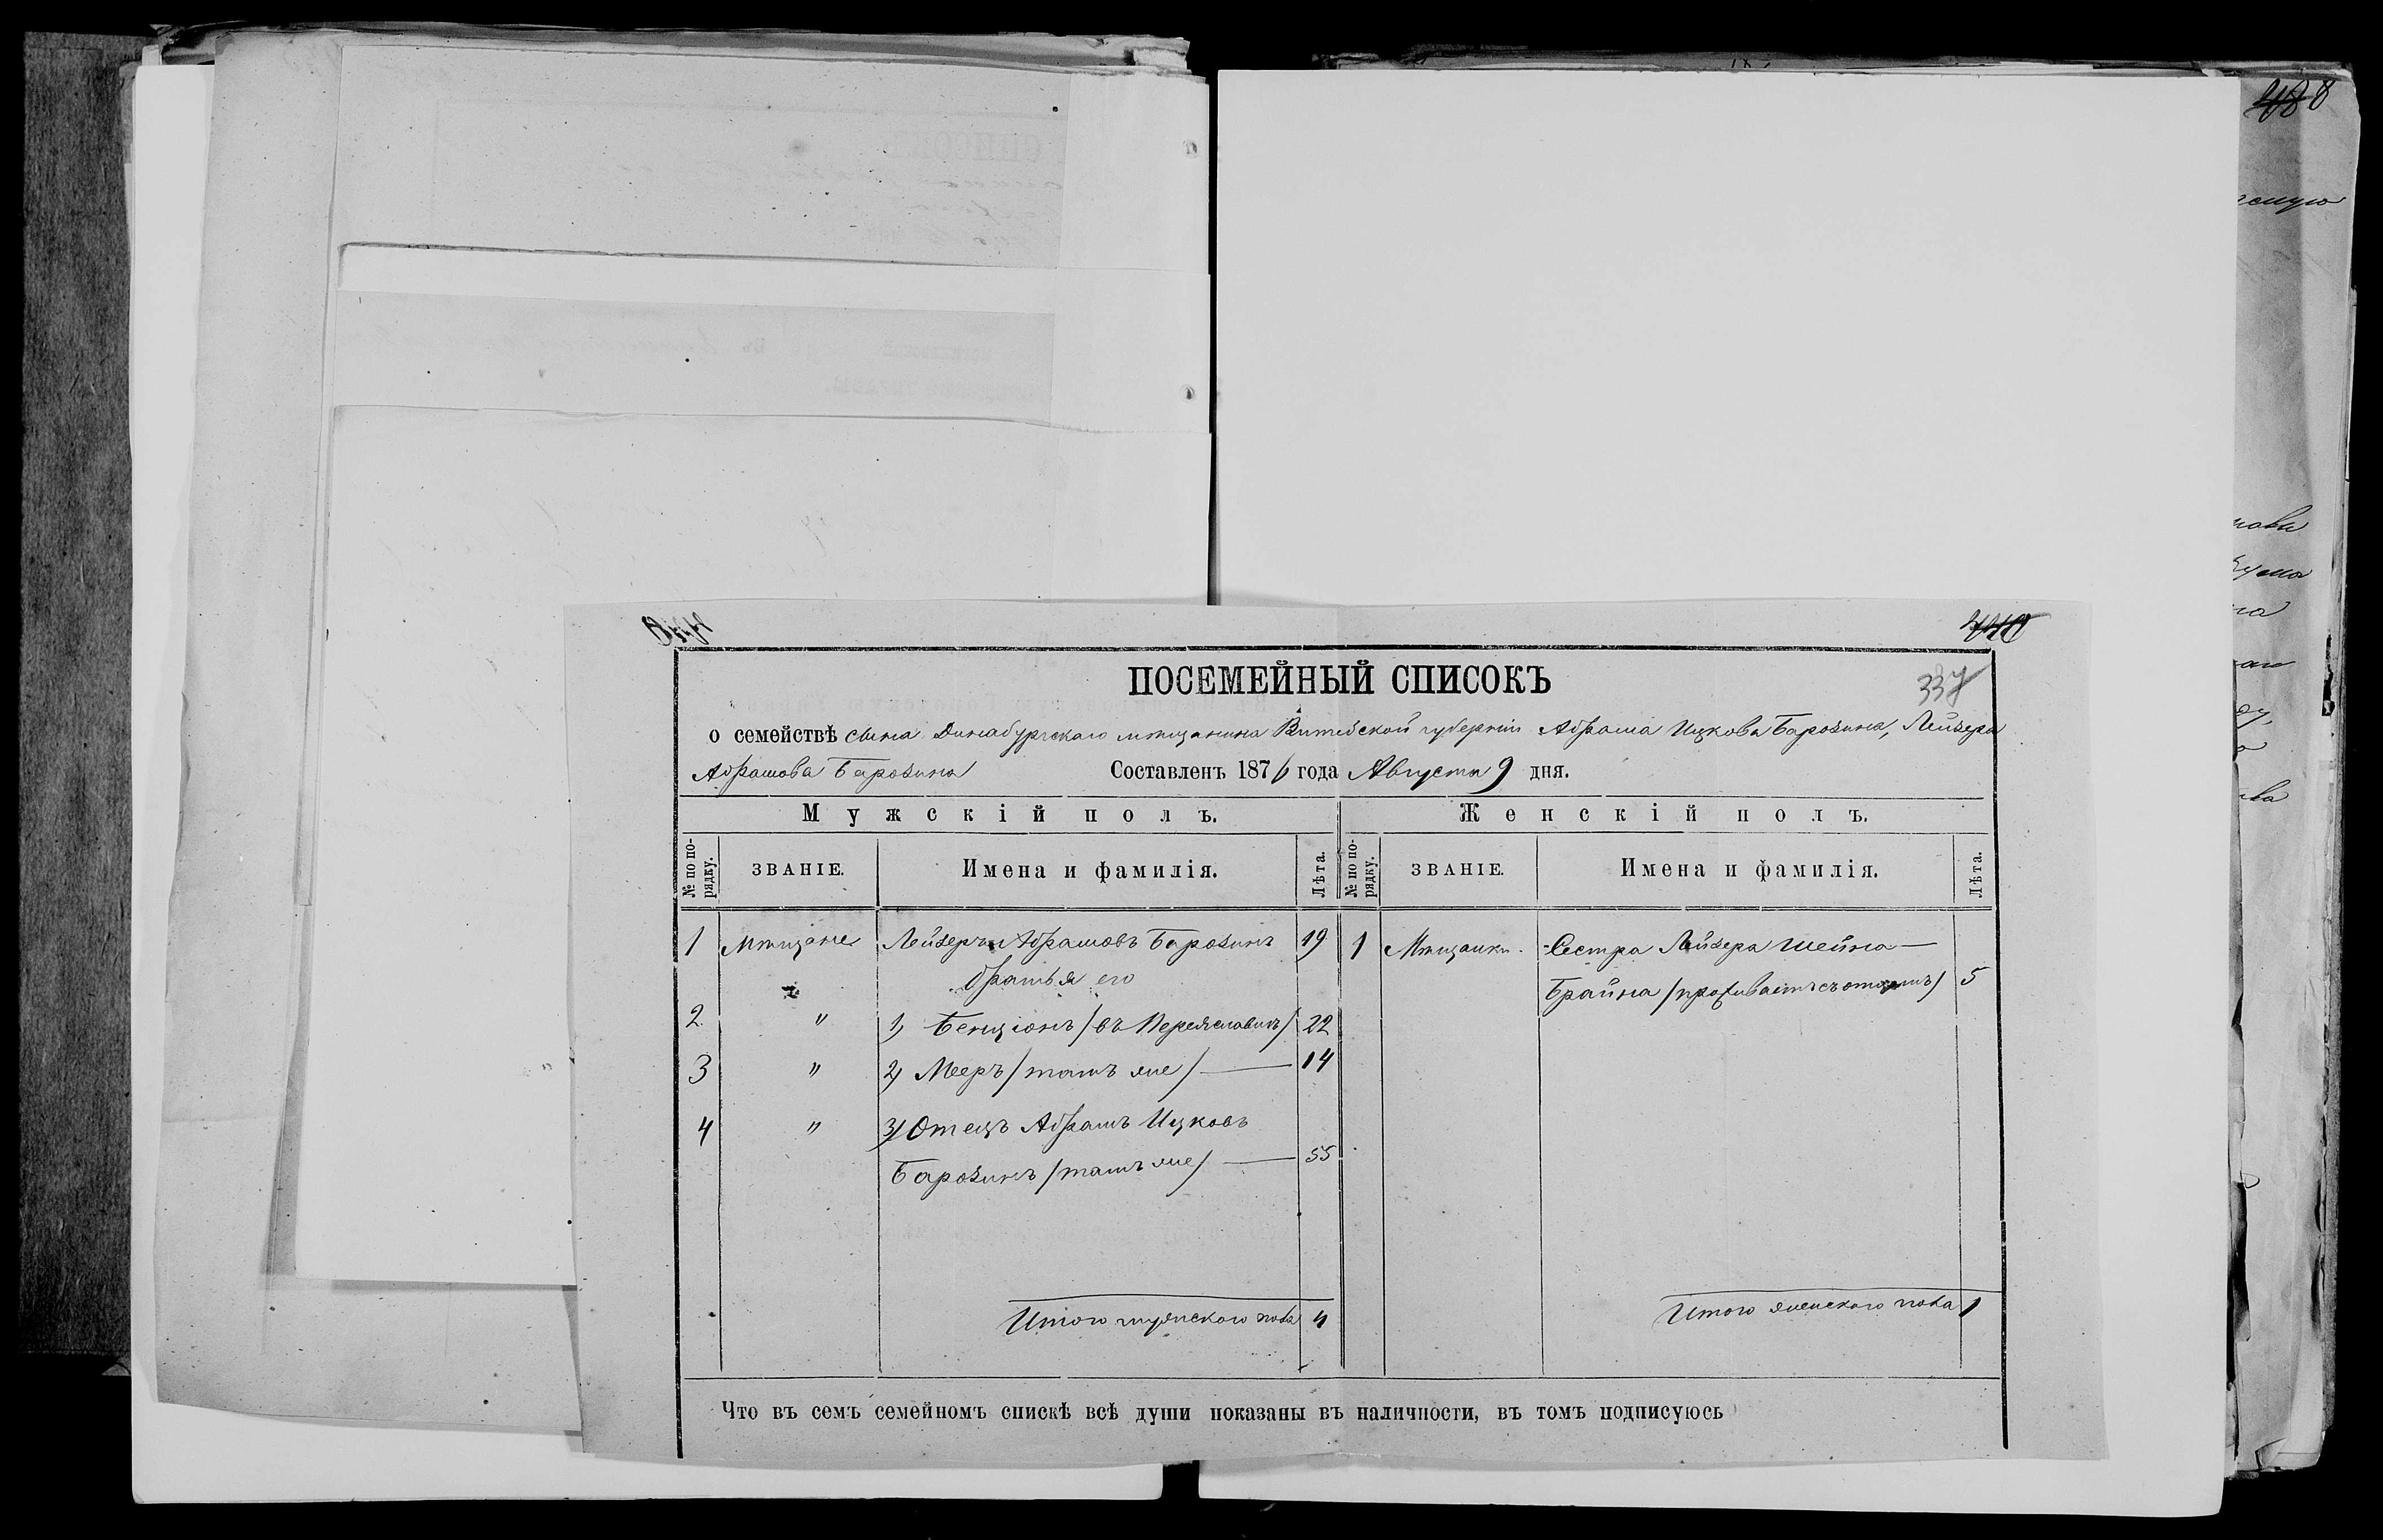 488
440
ПОСЕМЕЙНЫЙ СПИСОКЪ
337
о семействѣ сына Динабургскаго мѣщанина Витебской губерніи Абрама Ицкова Барозина, Лейзера
Абрамова Барозина Составленъ 1876 года Августа 9 дня.
Мужскій полъ. Женскій полъ.
№ по порядку. ЗВАНІЕ. Имена и фамилія. Лѣта. № по порядку. ЗВАНІЕ. Имена и фамилія. Лѣта.
1 Мѣщане Лейзеръ Абрамовъ Барозинъ 19 1 Мѣщанка Сестра Лейзера Шейна
братья его Брайна /проживаетъ съ отцомъ/ 5
2 " 1) Бенціонъ /въ Переяславлѣ/ 22
3 " 2) Мееръ /тамъ же/ 14
4 " 3) Отецъ Абрамъ Ицковъ
Барозинъ /тамъ же/ 55
Итого мужескаго пола 4 Итого женскаго пола 1
Что въ семъ семейномъ спискѣ всѣ души показаны въ наличности, въ томъ подписуюсь